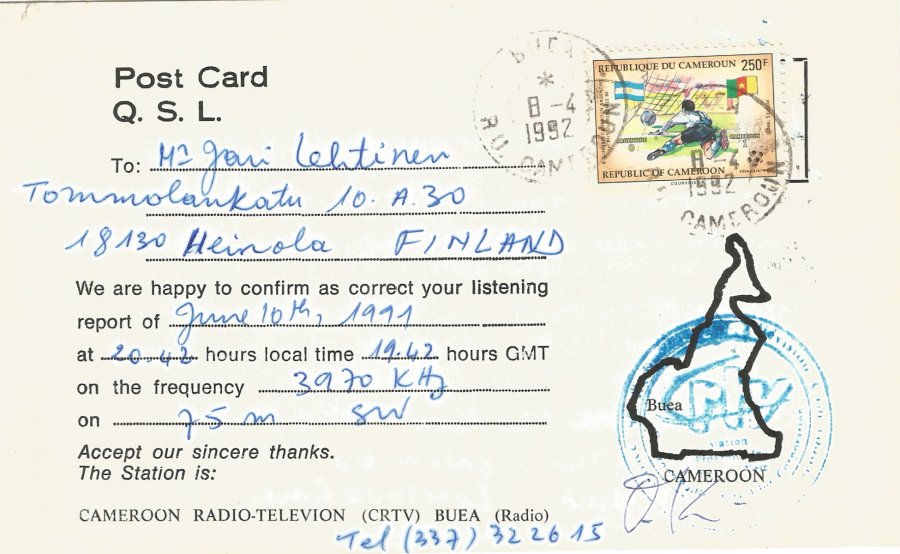 Post Card
Q. S. L.
To: Mr Jari Lehtinen
Tommolankatu 10. A. 30
18130 Heinola FINLAND
We are happy to confirm as correct your listening
report of June 10th, 1991
at 20.42 hours local time 19.42 hours GMT
on the frequency 3970 KHz
on 75 m SW
Accept our sincere thanks.
The Station is:
CAMEROON RADIO-TELEVION (CRTV) BUEA (Radio)
Tel (237) 32 26 15
BUEA
8-4
1992
CAMEROUN
REPUBLIQUE DU CAMEROUN 250F
ARGENTINE
0
CAMEROUN
1
REPUBLIC OF CAMEROON
8-4
1992
CAMEROUN
crtv
Station
Buea
CAMEROON